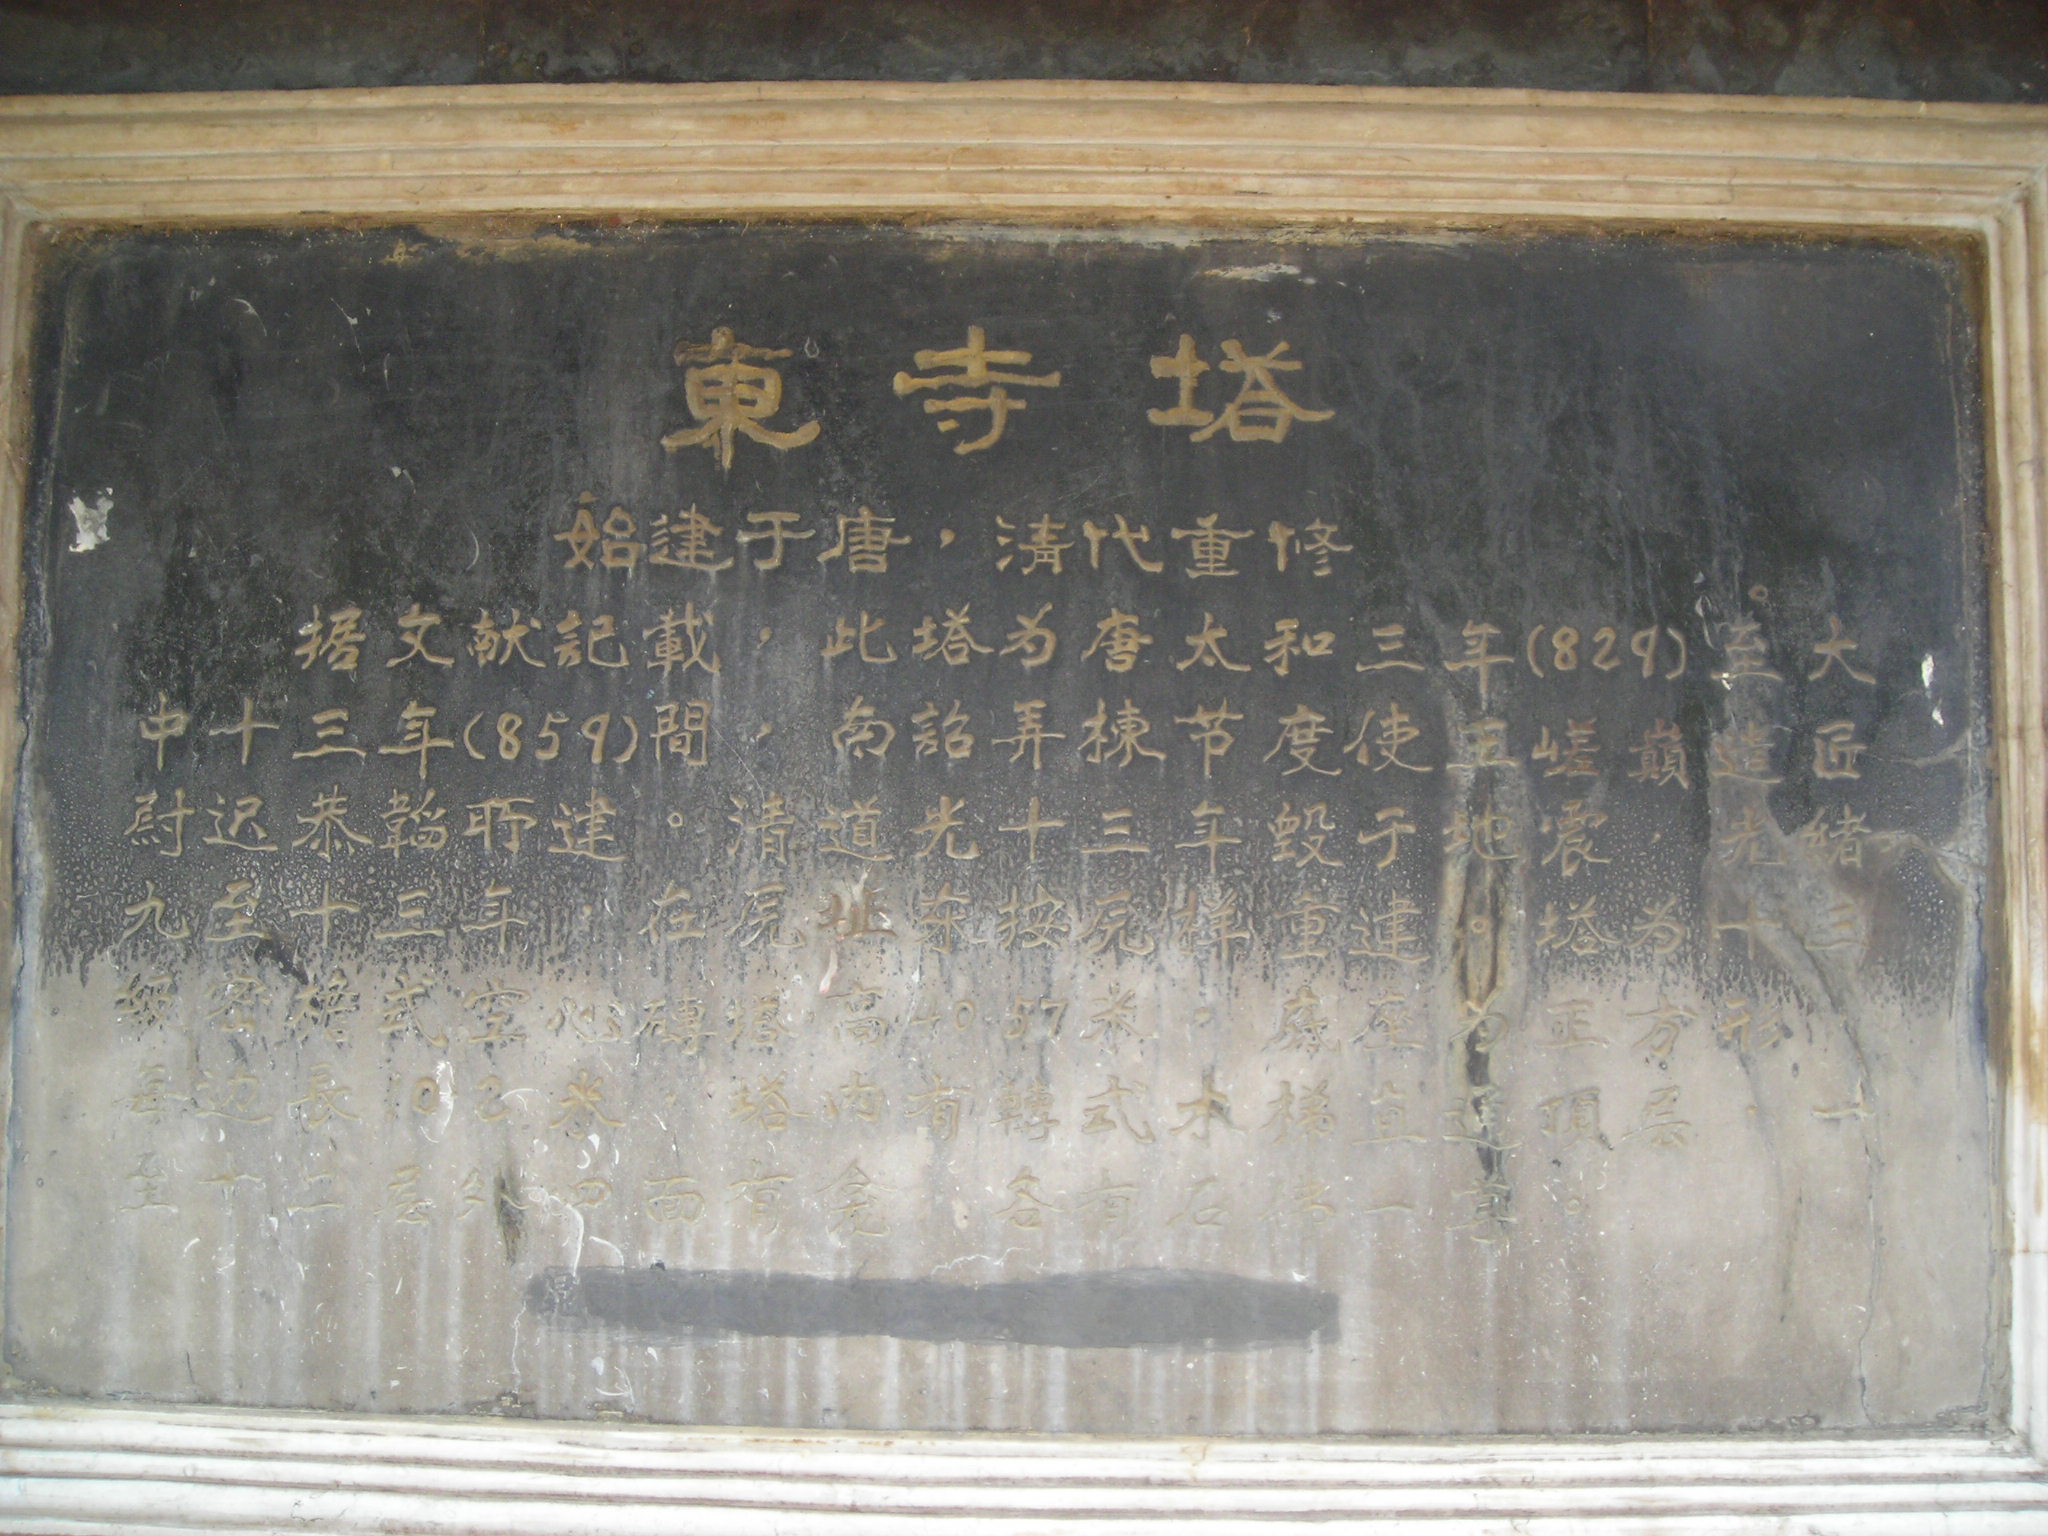 東寺塔
始建于唐，清代重修
据文献記載，此塔为唐太和三年(829)至大
中十三年(859)間，南詔弄棟节度使王嵯巔造。匠
尉迟恭韜所建。清道光十三年毀于地震，光緒
九至十三年，在原址东按原样重建。塔为十三
級密檐式空心磚塔，高40.57米，底座为正方形，
每边長10.2米，塔内有轉式木梯直通頂层，一
至十二层外四面有龛，各有石佛一尊。